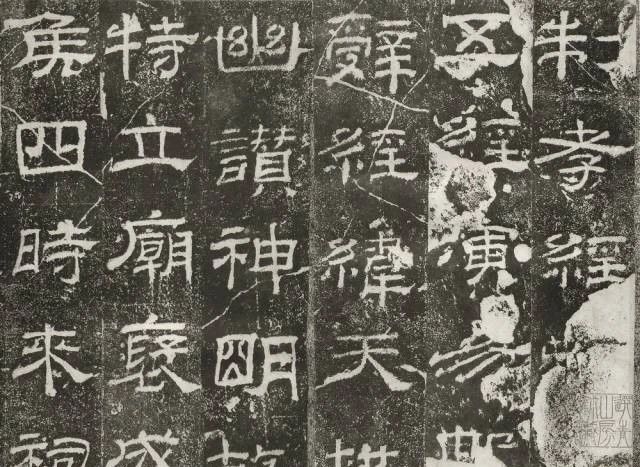 制孝經
五經演易
辭經緯天
幽讚神朙故
特立廟褒成
侯四時來祠